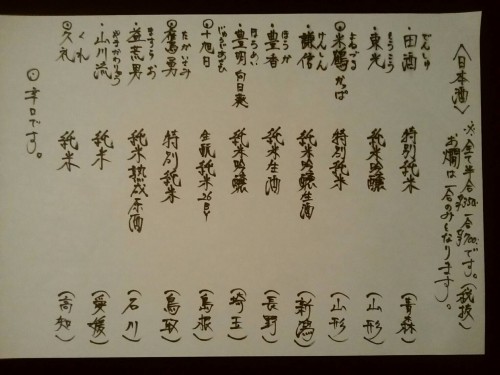 〈日本酒〉 ※全て半合350、一合700です。(税抜)
お燗は一合のみとなります。
・田酒 でんしゅ 特別純米 (青森)
・東光 とうこう 純米吟醸 (山形)
◎米鶴 かっぱ よねつる 特別純米 (山形)
・謙信 けんしん 純米吟醸生酒 (新潟)
・豊香 ほうか 純米生酒 (長野)
・豊明 ほうめい 純米吟醸 (埼玉)
◎十旭日 じゅうじあさひ 生酛純米26BY (島根)
◎鷹勇 たかいさみ 特別純米 (鳥取)
・益荒男 ますらお 純米熟成原酒 (石川)
・山川流 純米 (愛媛)
◎久礼 くれ 純米 (高知)
◎辛口です。